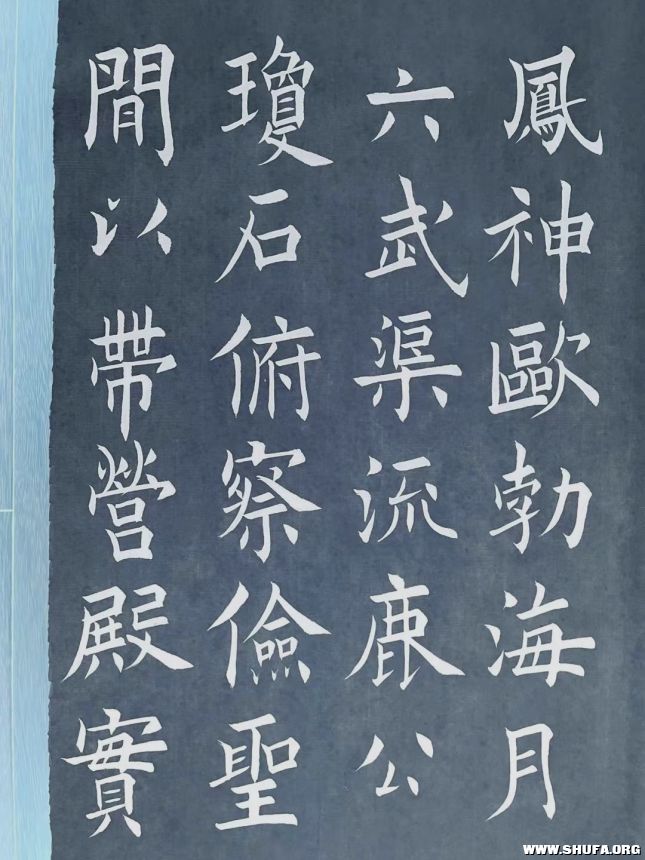 鳳神歐勃海月
六武渠流鹿公
瓊石俯察儉聖
間以帶營殿實
WWW.SHUFA.ORG